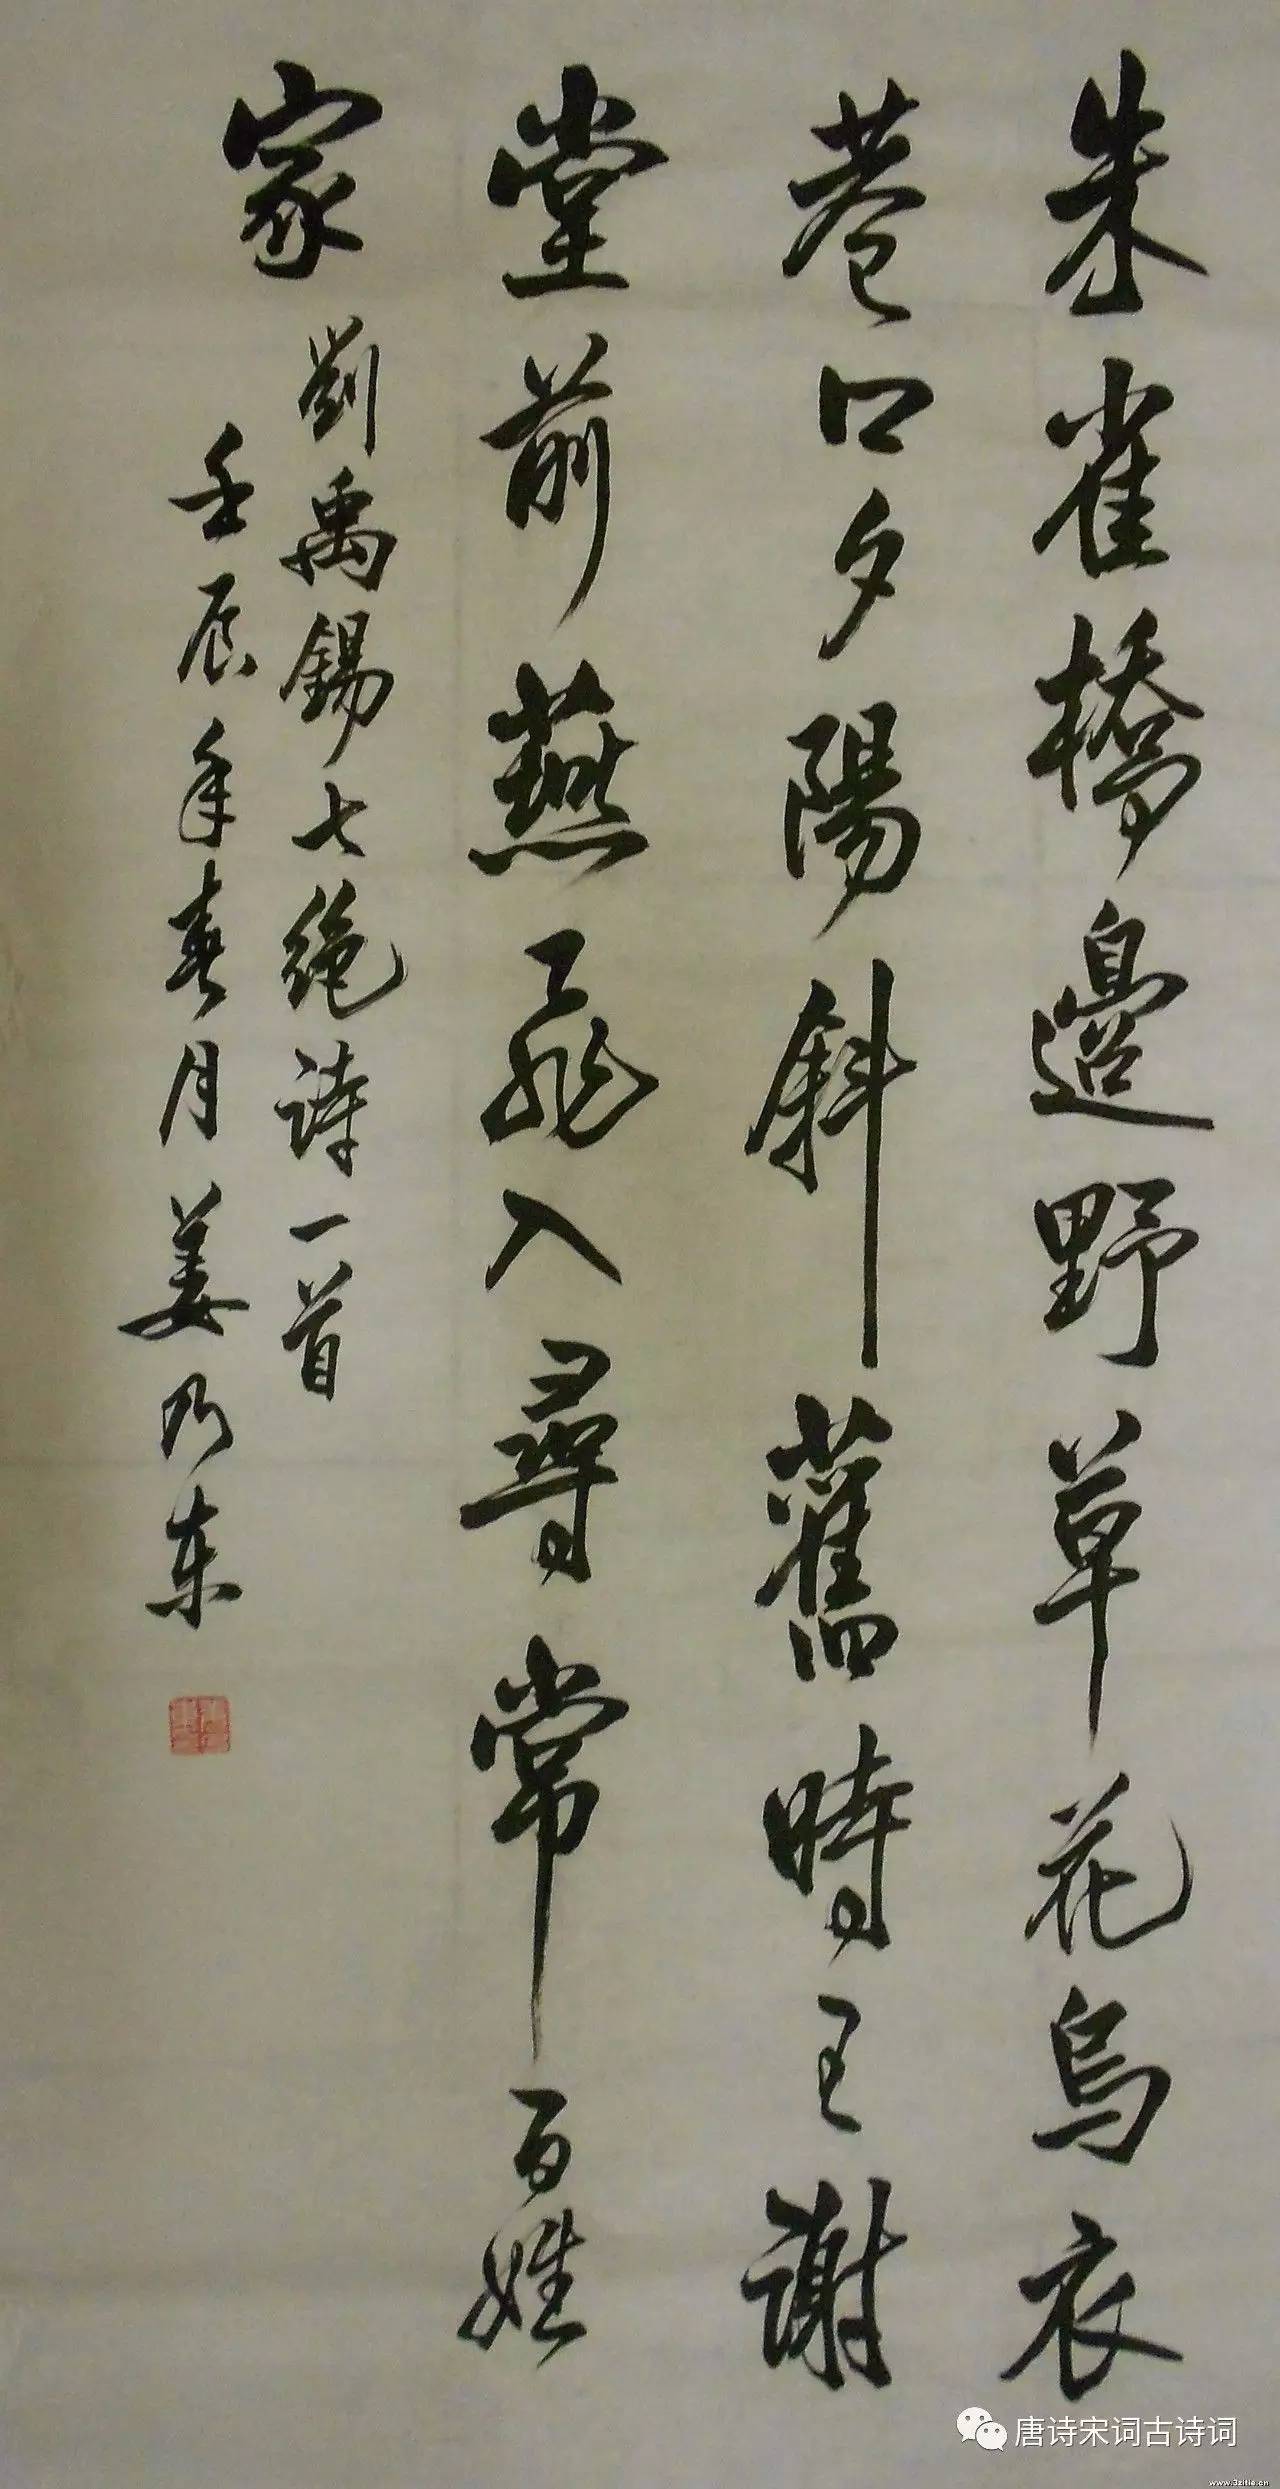 朱雀橋邊野草花烏衣
巷口夕陽斜舊時王謝
堂前燕飛入尋常百姓
家
劉禹錫七绝詩一首
壬辰年春月姜乃东
唐诗宋词古诗词
www.3zitie.cn